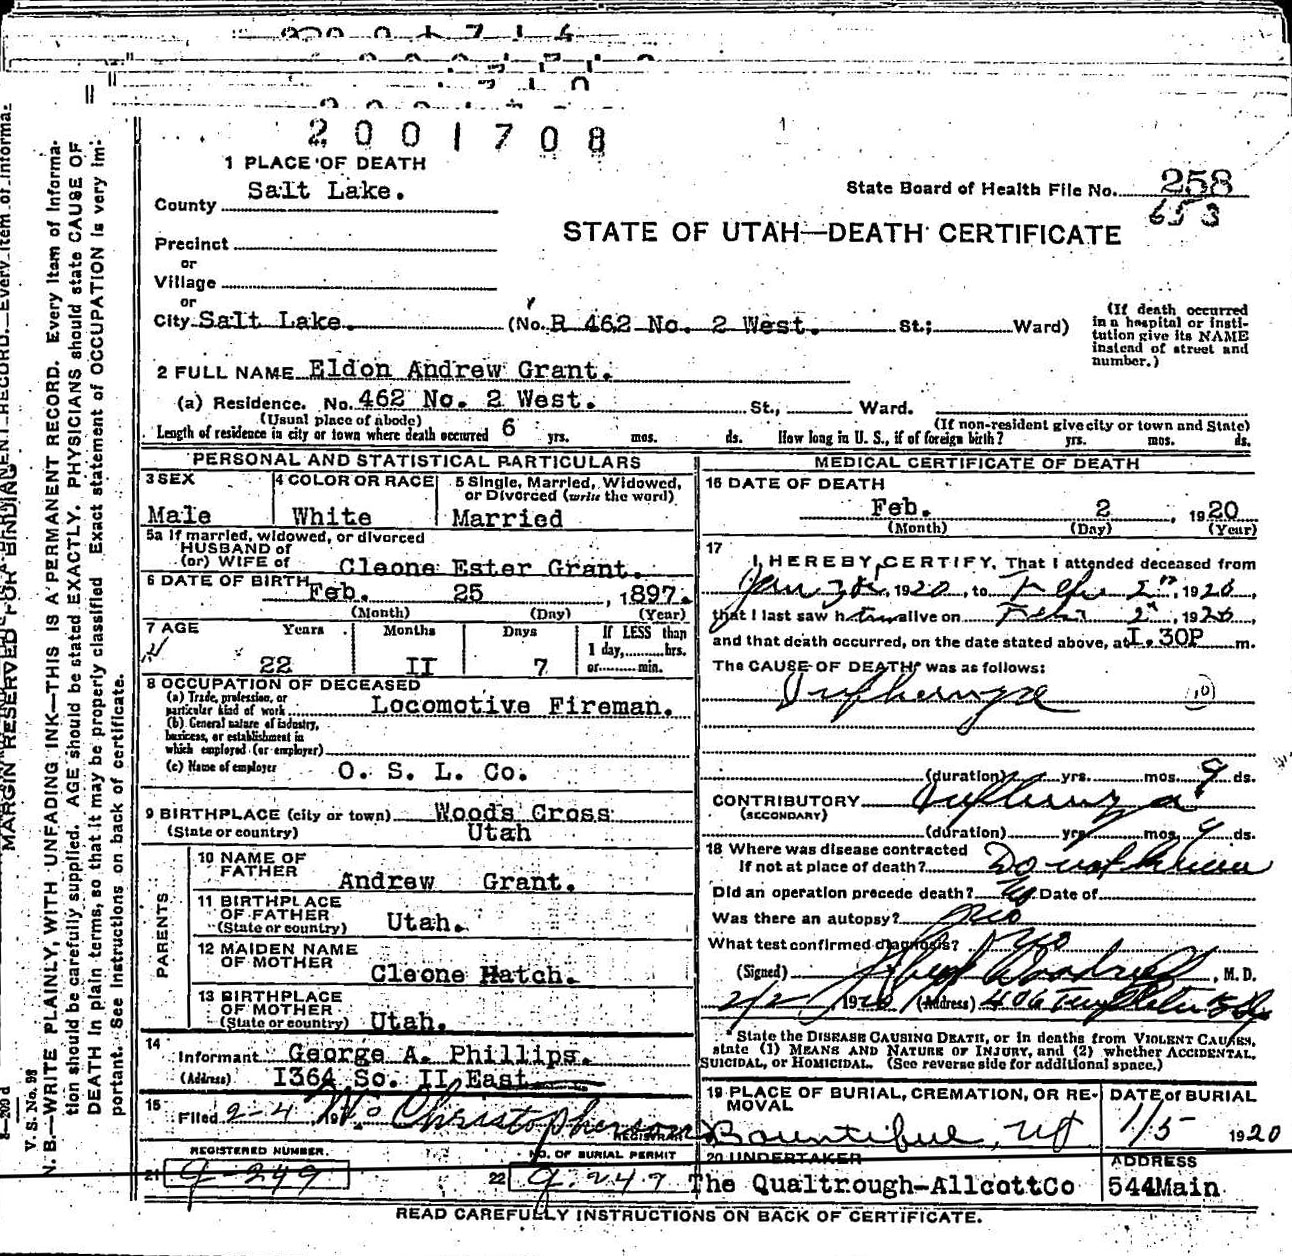 2001708
1 PLACE OF DEATH
County Salt Lake.
State Board of Health File No. 258
653
STATE OF UTAH—DEATH CERTIFICATE
Precinct
or
Village
or
City Salt Lake. (No. R 462 No. 2 West. St.; Ward)
(If death occurred in a hospital or institution give its NAME instead of street and number.)
2 FULL NAME Eldon Andrew Grant.
(a) Residence. No. 462 No. 2 West. St., Ward.
(Usual place of abode) (If non-resident give city or town and State)
Length of residence in city or town where death occurred 6 yrs. mos. ds. How long in U. S., if of foreign birth? yrs. mos. ds.
PERSONAL AND STATISTICAL PARTICULARS
3 SEX
Male
4 COLOR OR RACE
White
5 Single, Married, Widowed, or Divorced (write the word)
Married
5a If married, widowed, or divorced
HUSBAND of
(or) WIFE of Cleone Ester Grant.
6 DATE OF BIRTH Feb. 25, 1897.
(Month) (Day) (Year)
7 AGE Years Months Days If LESS than
1 day, hrs.
22 II 7 or min.
8 OCCUPATION OF DECEASED
(a) Trade, profession, or
particular kind of work Locomotive Fireman.
(b) General nature of industry,
business, or establishment in
which employed (or employer)
(c) Name of employer O. S. L. Co.
9 BIRTHPLACE (city or town) Woods Cross
(State or country) Utah
PARENTS
10 NAME OF
FATHER Andrew Grant.
11 BIRTHPLACE
OF FATHER
(State or country) Utah.
12 MAIDEN NAME
OF MOTHER Cleone Hatch.
13 BIRTHPLACE
OF MOTHER
(State or country) Utah.
14
Informant George A. Phillips.
(Address) I364 So. II East
15
Filed 2-4 19 Christopherson
REGISTRAR
REGISTERED NUMBER.
21 9-249
NO. OF BURIAL PERMIT
22 9.247
MEDICAL CERTIFICATE OF DEATH
16 DATE OF DEATH
Feb. 2, 1920
(Month) (Day) (Year)
17
I HEREBY CERTIFY, That I attended deceased from
Jan 1920, to Feb 2nd, 1920,
that I last saw him alive on Feb 2nd, 1920,
and that death occurred, on the date stated above, at I.30P m.
The CAUSE OF DEATH* was as follows:
Influenza (10)
(duration) yrs. mos. 9 ds.
CONTRIBUTORY Influenza
(SECONDARY)
(duration) yrs. mos. 9 ds.
18 Where was disease contracted
If not at place of death? Do not know
Did an operation precede death? No Date of
Was there an autopsy? no
What test confirmed diagnosis?
(Signed) , M. D.
2/2, 1920 (Address) 406 Templeton Bldg
*State the DISEASE CAUSING DEATH, or in deaths from VIOLENT CAUSES,
state (1) MEANS AND NATURE OF INJURY, and (2) whether ACCIDENTAL,
SUICIDAL, or HOMICIDAL. (See reverse side for additional space.)
19 PLACE OF BURIAL, CREMATION, OR RE-
MOVAL
Bountiful, Ut
DATE of BURIAL
1/5 1920
20 UNDERTAKER
The Qualtrough-AllcottCo
ADDRESS
544Main
READ CAREFULLY INSTRUCTIONS ON BACK OF CERTIFICATE.
MARGIN RESERVED FOR BINDING
V. S. No. 98
N. B.—WRITE PLAINLY, WITH UNFADING INK—THIS IS A PERMANENT RECORD. Every item of informa-
tion should be carefully supplied. AGE should be stated EXACTLY. PHYSICIANS should state CAUSE OF
DEATH in plain terms, so that it may be properly classified. Exact statement of OCCUPATION is very im-
portant. See instructions on back of certificate.